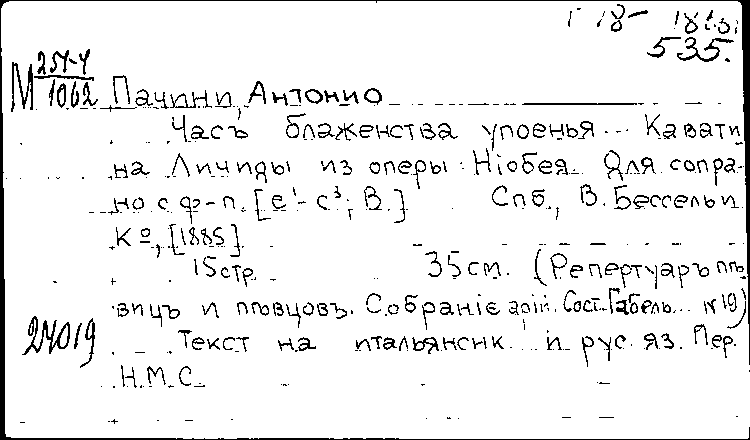 18-
535.
М 257-4/1062 Пачини, Антонио
Часъ блаженства упоенья... Кавати
на Личиды из оперы Ніобея. Для сопра-
но с ф-п. [e¹-c³; B.] Спб., В. Бессель и
Кº, [1885]
15 стр. 35 см. (Репертуаръ пѣ
вицъ и пѣвцовъ. Собраніе арій. Сост. Габель... №19)
24019 Текст на итальянск. и рус. яз. Пер.
Н.М.С.